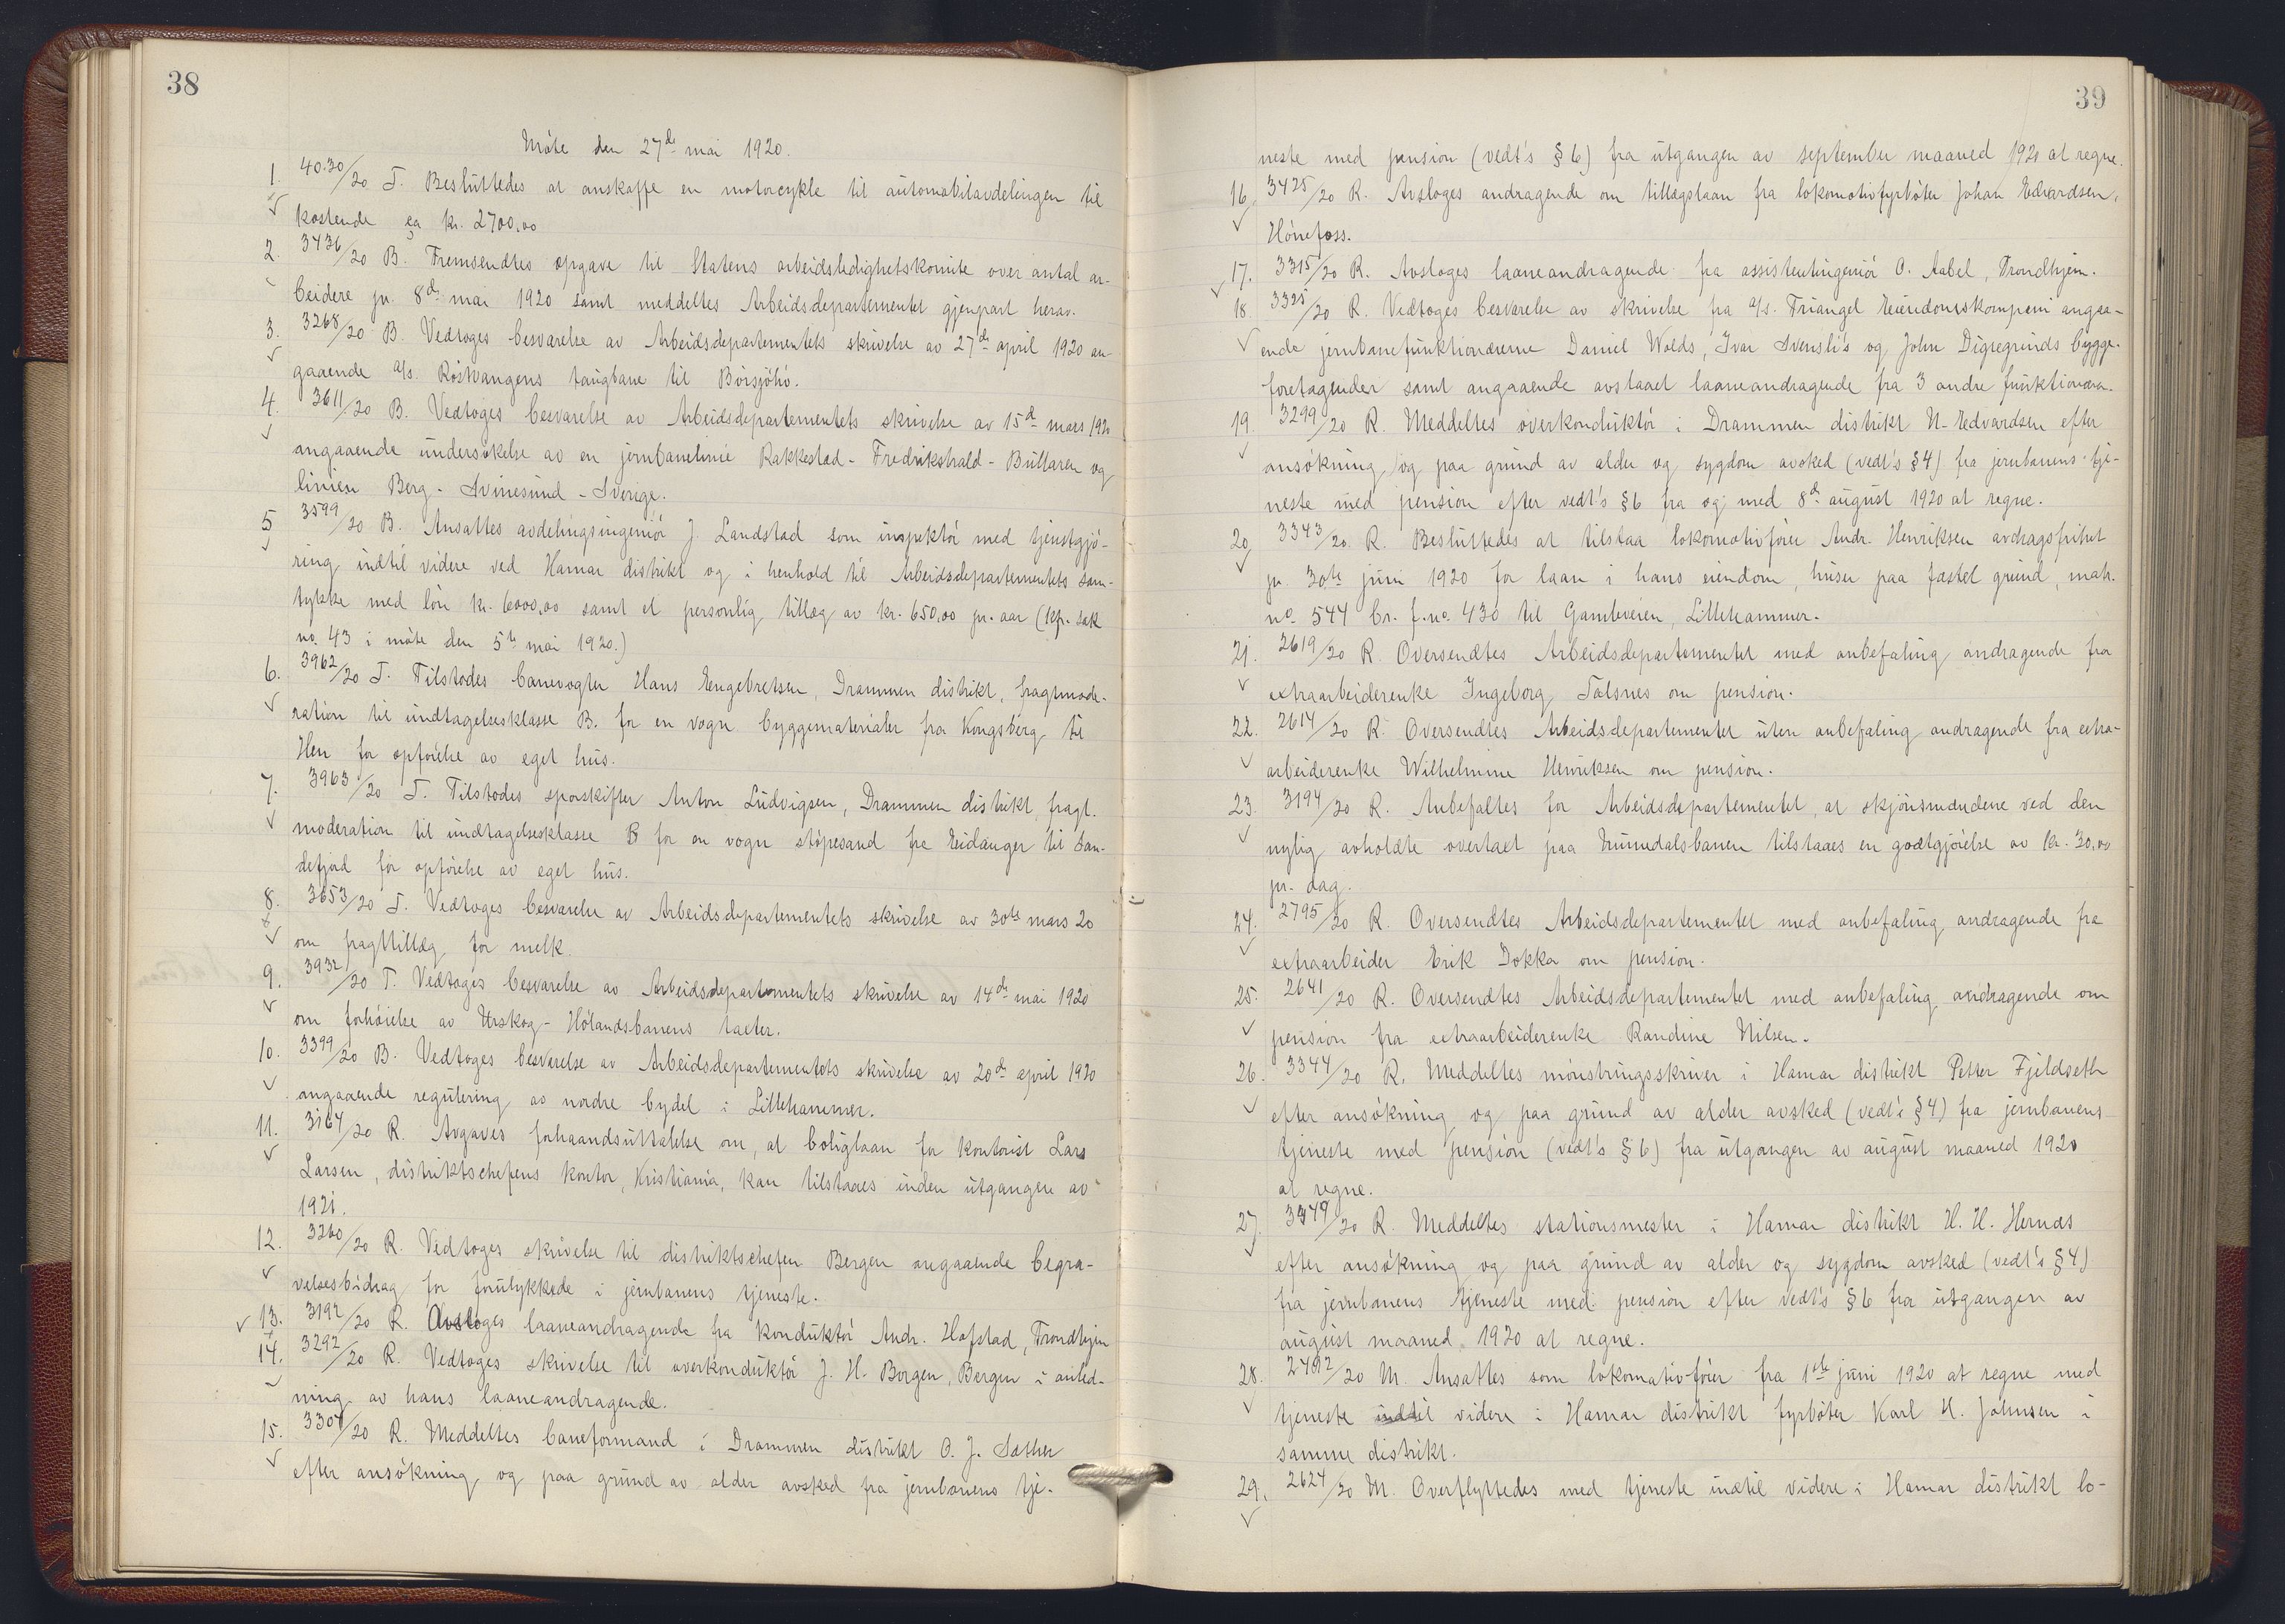 38
Møte den 27de mai 1920.
1. 4030/20 T. Besluttedes at anskaffe en motorcykle til automobilavdelingen til
kostende ca kr. 2700,00
2. 3436/20 B. Fremsendtes opgave til Statens arbeidsledighetskomite over antal ar-
beidere pr. 8de mai 1920 samt meddeltes Arbeidsdepartementet gjenpart herav.
3. 3268/20 B. Vedtoges besvarelse av Arbeidsdepartementets skrivelse av 27de april 1920 an-
gaaende a/s. Røstvangens taugbane til Børsjøhø.
4. 3611/20 B. Vedtoges besvarelse av Arbeidsdepartementets skrivelse av 15de mars 1920
angaaende undersøkelse av en jernbanelinie Rakkestad - Fredrikshald - Bullaren og
linien Berg - Svinesund - Sverige.
5 3599/20 B. Ansattes avdelingsingeniør J. Landstad som inspektør med tjenstgjø-
ring indtil videre ved Hamar distrikt og i henhold til Arbeidsdepartementets sam-
tykke med løn kr. 6000,00 samt et personlig tillæg av kr. 650,00 pr. aar (kfr. sak
no. 43 i møte den 5te mai 1920.)
6. 3962/20 T. Tilstodes banevogter Hans Engebretsen, Drammen distrikt, fragtmode-
ration til undtagelsesklasse B. for en vogn byggematerialer fra Kongsberg til
Hen for opførelse av eget hus.
7. 3963/20 T. Tilstodes sporskifter Anton Ludvigsen, Drammen distrikt, fragt-
moderation til undtagelsesklasse B for en vogn støpesand fra Eidanger til San-
defjord for opførelse av eget hus.
8. 3653/20 T. Vedtoges besvarelse av Arbeidsdepartementets skrivelse av 30te mars 20
om fragttillæg for melk.
9. 3932/20 T. Vedtoges besvarelse av Arbeidsdepartementets skrivelse av 14de mai 1920
om forhøielse av Urskog - Hølandsbanens takter.
10. 3399/20 B. Vedtoges besvarelse av Arbeidsdepartementets skrivelse av 20de april 1920
angaaende regulering av nordre bydel i Lillehammer.
11. 3164/20 R. Avgaves forhaandsuttalelse om, at boliglaan for kontorist Lars
Larsen, distriktschefens kontor, Kristiania, kan tilstaaes inden utgangen av
1921.
12. 3260/20 R. Vedtoges skrivelse til distriktschefen Bergen angaaende begra-
velsesbidrag for forulykkede i jernbanens tjeneste.
13. 3192/20 R. Avsloges laaneandragende fra konduktør Andr. Hofstad, Trondhjem
14. 3292/20 R. Vedtoges skrivelse til overkonduktør J. H. Borgen, Bergen i anled-
ning av hans laaneandragende.
15. 3307/20 R. Meddeltes baneformand i Drammen distrikt O. J. Sæther
efter ansøkning og paa grund av alder avsked fra jernbanens tje-
39
neste med pension (vedt's § 6) fra utgangen av september maaned 1920 at regne.
16. 3425/20 R. Avsloges andragende om tillægslaan fra lokomotivfyrbøter Johan Edvardsen,
Hønefoss.
17. 3315/20 R. Avsloges laaneandragende fra assistentingeniør O. Aabel, Trondhjem.
18. 3325/20 R. Vedtoges besvarelse av skrivelse fra a/s. Triangel Eiendomskompani angaa-
ende jernbanefunktionærerne Daniel Wolds, Ivar Svensli's og John Digregrinds bygge-
foretagender samt angaaende avslaaet laaneandragende fra 3 andre funktionærer.
19. 3299/20 R. Meddeltes overkonduktør i Drammen distrikt N. Edvardsen efter
ansøkning og paa grund av alder og sygdom avsked (vedt's § 4) fra jernbanens tje-
neste med pension efter vedt's § 6 fra og med 8de august 1920 at regne.
20. 3343/20. R. Besluttedes at tilstaa lokomotivfører Andr. Henriksen avdragsfrihet
pr. 30te juni 1920 for laan i hans eiendom, huser paa fæstet grund, matr.
no. 544 br. f.no. 430 til Gambeveien, Lillehammer.
21. 2619/20 R. Oversendtes Arbeidsdepartementet med anbefaling andragende fra
extraarbeiderenke Ingeborg Tolsnes om pension.
22. 2614/20 R. Oversendtes Arbeidsdepartementet uten anbefaling andragende fra extra-
arbeiderenke Wilhelmine Henriksen om pension.
23. 3194/20 R. Anbefaltes for Arbeidsdepartementet, at skjønsmændene ved den
nylig avholdte overtaxt paa Numedalsbanen tilstaaes en godtgjørelse av kr. 30,00
pr. dag.
24. 2795/20 R. Oversendtes Arbeidsdepartementet med anbefaling andragende fra
extraarbeider Erik Dokka om pension.
25. 2641/20 R. Oversendtes Arbeidsdepartementet med anbefaling andragende om
pension fra extraarbeiderenke Randine Nilsen.
26. 3344/20 R. Meddeltes mønstringsskriver i Hamar distrikt Petter Fjeldseth
efter ansøkning og paa grund av alder avsked (vedt's § 4) fra jernbanens
tjeneste med pension (vedt's § 6) fra utgangen av august maaned 1920
at regne.
27. 3349/20 R. Meddeltes stationsmester i Hamar distrikt H. H. Hernæs
efter ansøkning og paa grund av alder og sygdom avsked (vedt's § 4)
fra jernbanens tjeneste med pension efter vedt's § 6 fra utgangen av
august maaned 1920 at regne.
28. 2492/20 M. Ansattes som lokomotivfører fra 1ste juni 1920 at regne med
tjeneste indtil videre i Hamar distrikt fyrbøter Karl H. Johnsen i
samme distrikt.
29. 2624/20 M. Overflyttedes med tjeneste indtil videre i Hamar distrikt lo-